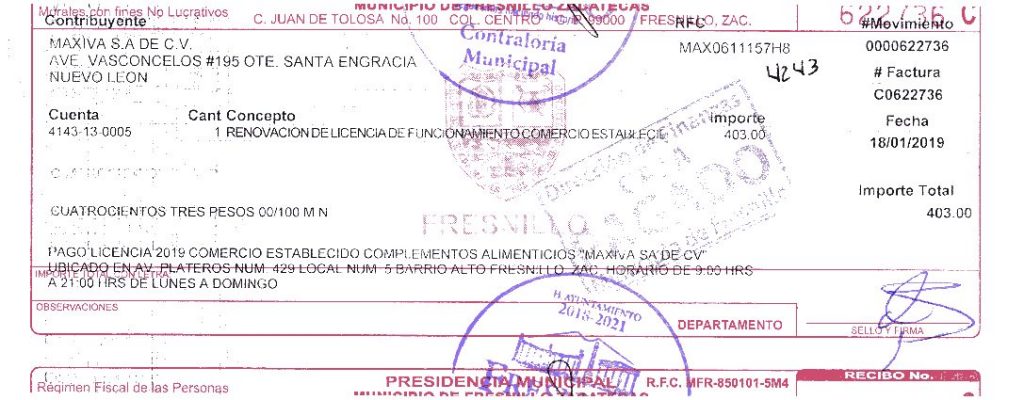 Morales con fines No Lucrativos
MUNICIPIO DE FRESNILLO ZACATECAS
C. JUAN DE TOLOSA No. 100 COL. CENTRO C.P. 99000 FRESNILLO, ZAC.
622736 C
Contribuyente
RFC
#Movimiento
MAXIVA S.A DE C.V.
MAX0611157H8
0000622736
AVE. VASCONCELOS #195 OTE. SANTA ENGRACIA
NUEVO LEON
4243
# Factura
C0622736
Contraloría
Municipal
Cuenta
Cant Concepto
Importe
Fecha
4143-13-0005
1 RENOVACION DE LICENCIA DE FUNCIONAMIENTO COMERCIO ESTABLECI
403.00
18/01/2019
Dirección de Finanzas
PAGADO
Importe Total
CUATROCIENTOS TRES PESOS 00/100 M N
403.00
FRESNILLO
PAGO LICENCIA 2019 COMERCIO ESTABLECIDO COMPLEMENTOS ALIMENTICIOS "MAXIVA SA DE CV"
UBICADO EN AV. PLATEROS NUM. 429 LOCAL NUM. 5 BARRIO ALTO FRESNILLO, ZAC. HORARIO DE 9:00 HRS
IMPORTE TOTAL CON LETRA
A 21:00 HRS DE LUNES A DOMINGO
OBSERVACIONES
H. AYUNTAMIENTO
2018-2021
DEPARTAMENTO
SELLO Y FIRMA
Régimen Fiscal de las Personas
PRESIDENCIA MUNICIPAL
R.F.C. MFR-850101-5M4
RECIBO No.
MUNICIPIO DE FRESNILLO ZACATECAS